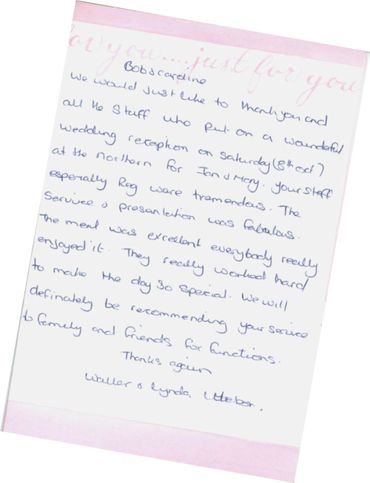 for you.... just for you
Bob & caroline
We would just like to thank you and
all the staff who put on a wounderful
wedding reception on saturday (8th oct)
at the northern for Ian & Mary. your staff
especially Reg ware tremendous. The
Service & presentation was fabulous.
The meal was excellent everybody really
enjoyed it. They really worked hard
to make the day so special. We will
definately be recommending your service
to family and friends for functions.
Thanks again
Walter & Lynda